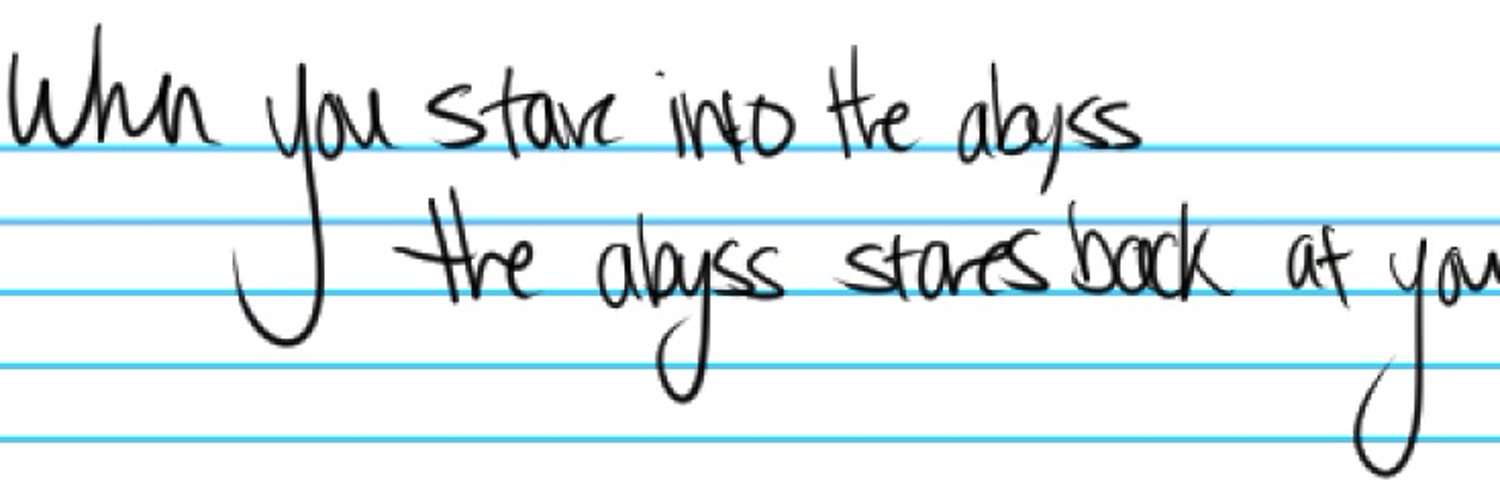 When you stare into the abyss
the abyss stares back at you